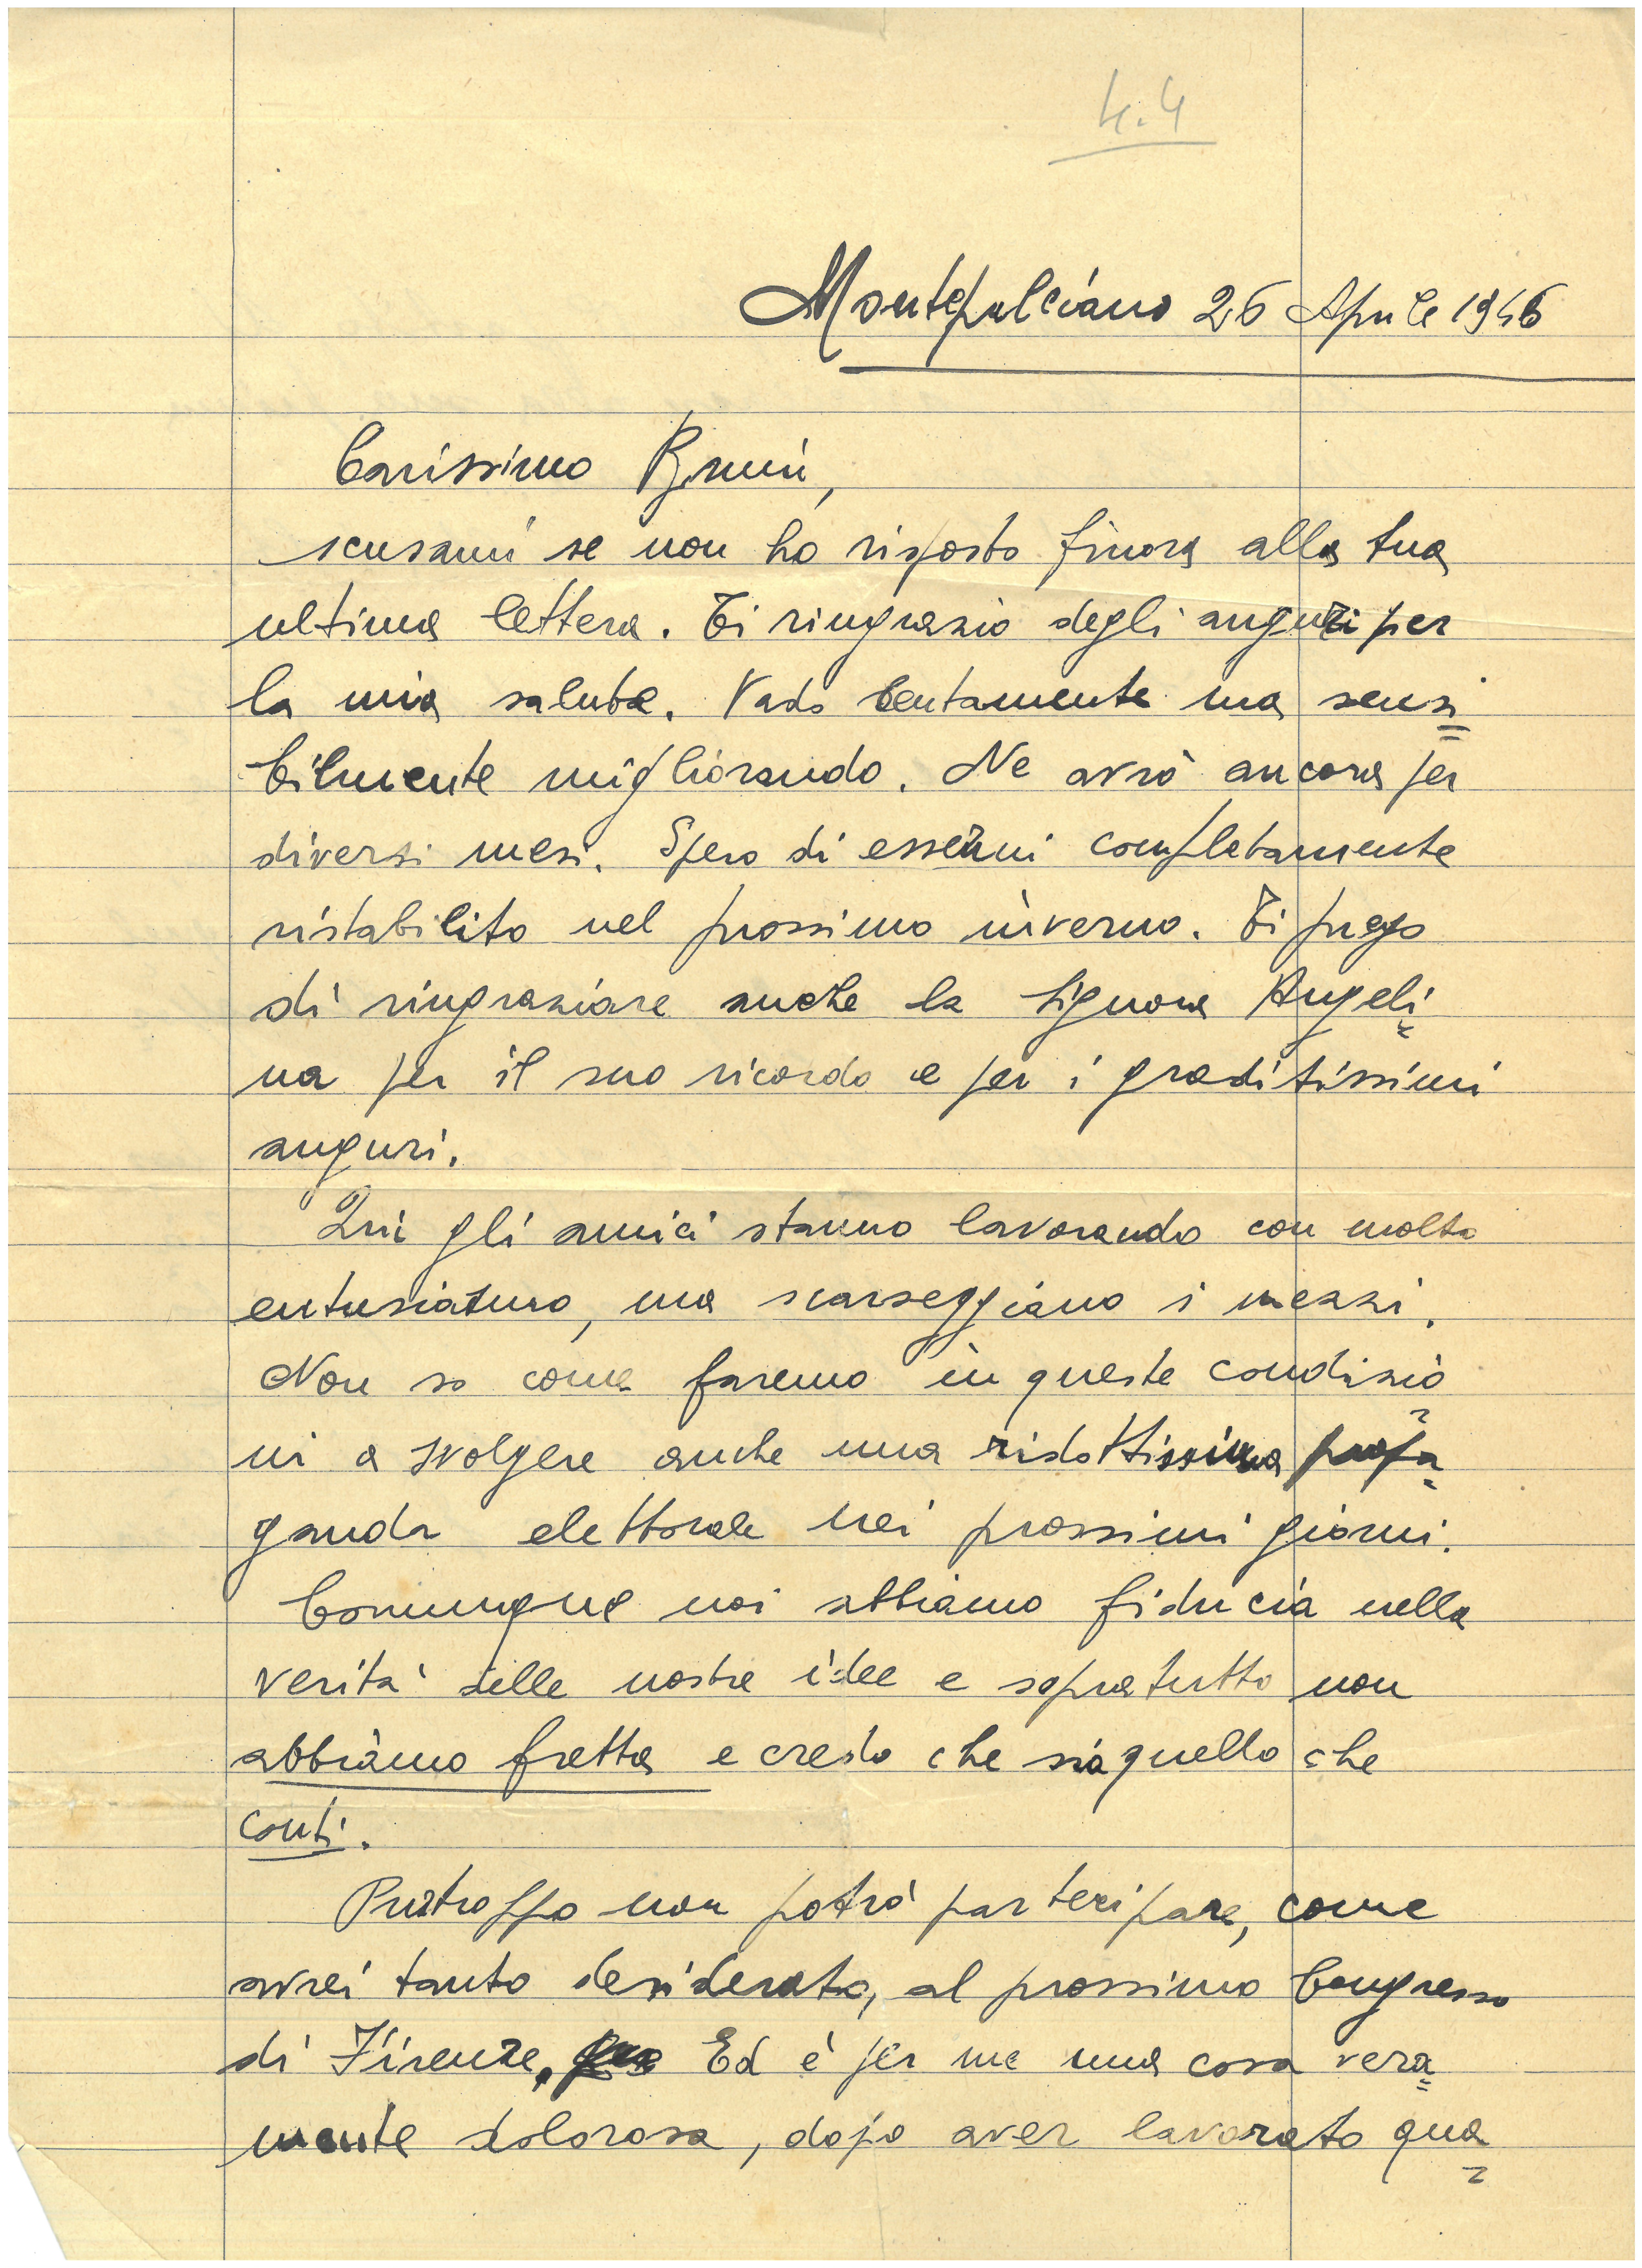 4.4
Montepulciano 26 Aprile 1946
Carissimo Bruni,
scusami se non ho risposto finora alla tua
ultima lettera. Ti ringrazio degli auguri per
la mia salute. Vado lentamente ma sensi=
bilmente migliorando. Ne avrò ancora per
diversi mesi. Spero di essermi completamente
ristabilito nel prossimo inverno. Ti prego
di ringraziare anche la Signora Angeli=
na per il suo ricordo e per i graditissimi
auguri.
Qui gli amici stanno lavorando con molto
entusiasmo, ma scarseggiano i mezzi.
Non so come faremo in queste condizio=
ni a svolgere anche una ridottissima propa=
ganda elettorale nei prossimi giorni.
Comunque noi abbiamo fiducia nella
verità delle nostre idee e sopratutto non
abbiamo fretta e credo che sia quello che
conti.
Purtroppo non potrò partecipare, come
avrei tanto desiderato, al prossimo Congresso
di Firenze. Ed è per me una cosa vera=
mente dolorosa, dopo aver lavorato qua=